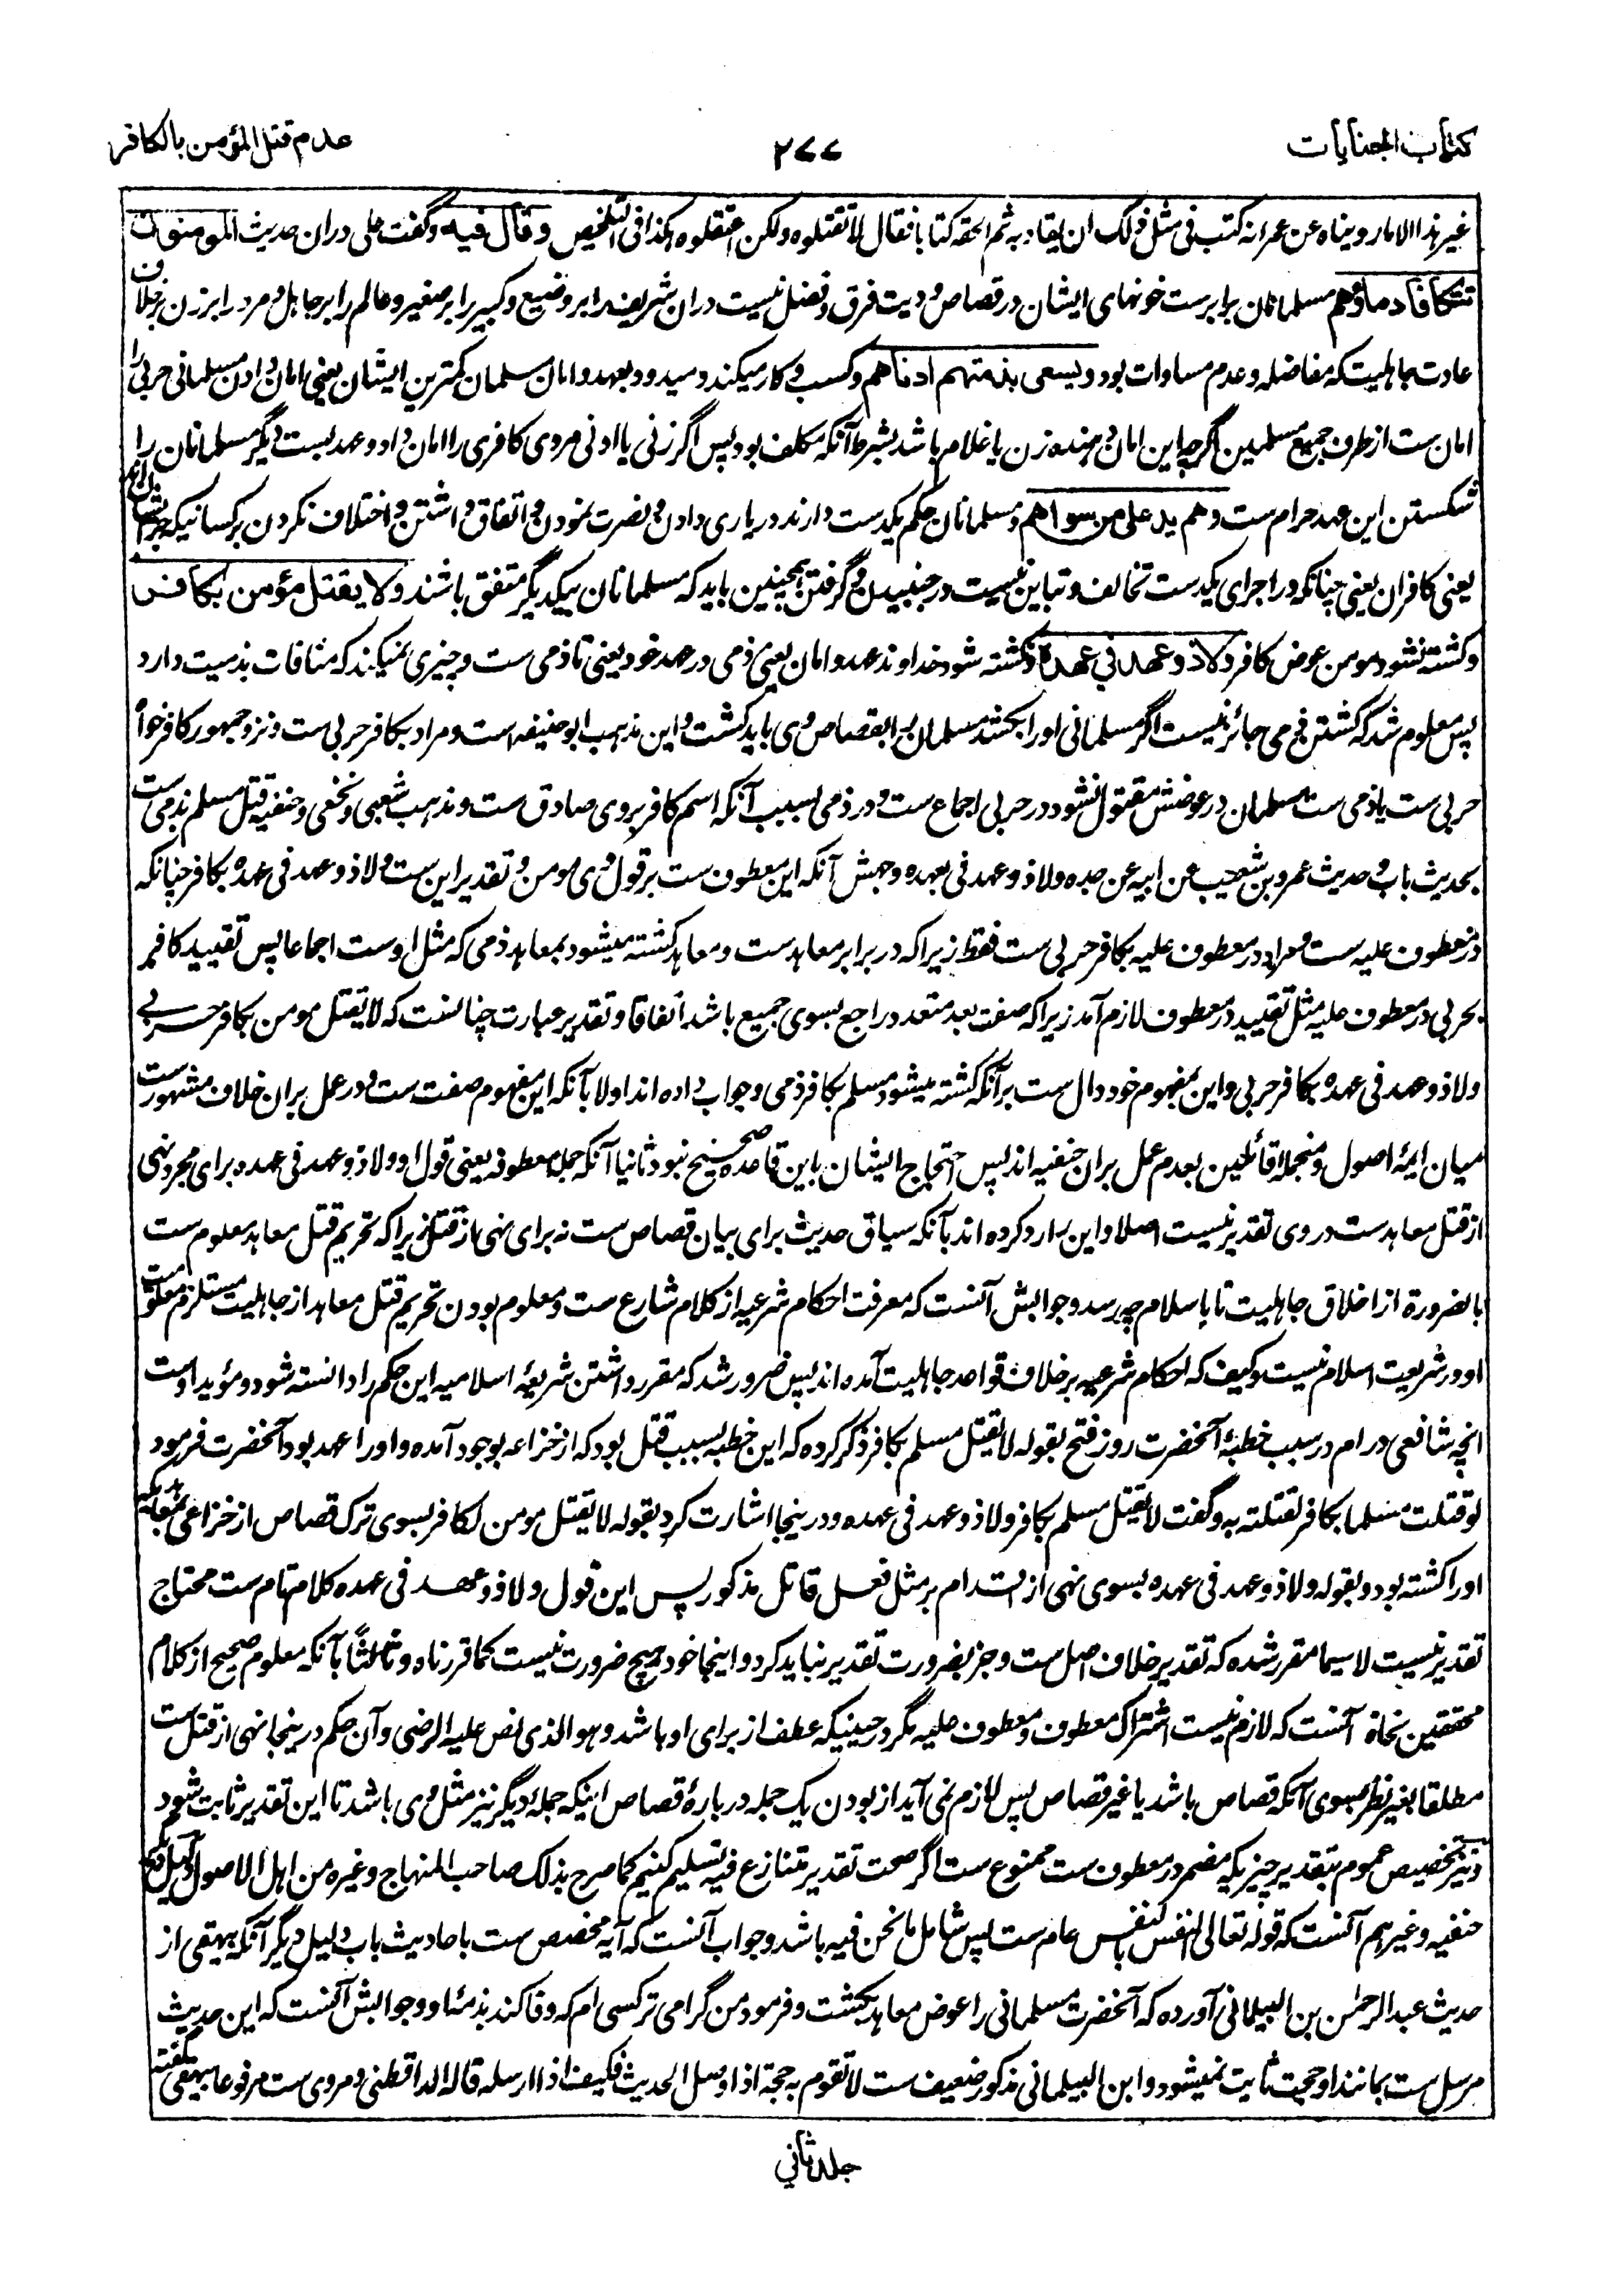 كتاب الجنايات
۲۷۷
عدم قتل المؤمن بالكافر
غير هذا الا ما روينا ه عن عمر انه كتب فى مثل ذلك ان يقاد به ثم الحقه كتابا فقال لا تقتلوه ولكن اعتقلوه هكذا فى التلخيص وقال فيه وگفت على دران حديث المومنون
تتكافأ دماؤهم مسلمانان برابرست خونهاى ايشان در قصاص و ديت فرق و فضل نيست دران شريف را بر وضيع و كبير را بر صغير و عالم را بر جاهل و مرد را بر زن بر خلاف
عادت جاهليت كه مفاضله و عدم مساوات بود ويسعى بذمتهم ادناهم وكسب و كار ميكند و ميدود بعهد و امان مسلمان كمترين ايشان يعنى امان دادن مسلمانى حربى را
امان ست از طرف جميع مسلمين اگرچه اين امان دهنده زن يا غلام باشد بشرط آنكه مكلف بود پس اگر زنى يا ادنى مردى كافرى را امان داد و عهد بست ديگر مسلمانان را
شكستن اين عهد حرام ست وهم يد على من سواهم و مسلمانان حكم يكدست دارند در يارى دادن و نصرت نمودن و اتفاق داشتن و اختلاف نكردن بر كسانيكه جز ايشان اند
يعنى كافران يعنى چنانكه در اجزاى يكدست تخالف و تباين نيست در جنبيدن و گرفتن همچنين بايد كه مسلمانان بيكديگر متفق باشند ولا يقتل مؤمن بكافر
و كشته نشود مومن عوض كافر ولا ذو عهد في عهده و كشته شود خداوند عهد و امان يعنى ذمى در عهد خود يعنى تا ذمى ست و چيزى نميكند كه منافات بذميت دارد
پس معلوم شد كه كشتن ذمى جائز نيست اگر مسلمانى او را بكشد مسلمان را بقصاص وى بايد كشت و اين مذهب ابو حنيفه است و مراد بكافر حربى ست و نزد جمهور كافر خواه
حربى ست يا ذمى ست مسلمان در عوضش مقتول نشود در حربى اجماع ست و در ذمى بسبب آنكه اسم كافر بروى صادق ست و مذهب شعبى و نخعى و حنفيه قتل مسلم بذمى ست
بحديث باب و حديث عمرو بن شعيب عن ابيه عن جده ولا ذو عهد فى بعهده وجهش آنكه اين معطوف ست بر قول وى مومن و تقدير اين ست ولا ذو عهد فى عهده بكافر چنانكه
در معطوف عليه ست و مراد در معطوف عليه بكافر حربى ست فقط زيرا كه در برابر معاهدست و معاهد كشته ميشود بمعاهد ذمى كه مثل اوست اجماعا پس تقييد كافر
بحربى در معطوف عليه مثل تقييد در معطوف لازم آمد زيرا كه صفت بعد متعدد راجع بسوى جميع باشد اتفاقا و تقدير عبارت چنانست كه لا يقتل مومن بكافر حربى
ولا ذو عهد فى عهده بكافر حربى و اين بمفهوم خود دال ست بر آنكه كشته ميشود مسلم بكافر ذمى و جواب داده اند اولا بآنكه اين مفهوم صفت ست و در عمل بران خلاف مشهور ست
ميان ايمه اصول و منجمله قائلين بعدم عمل بران حنفيه اند پس احتجاج ايشان باين قاعده صحيح نبود ثانيا آنكه جمله معطوفه يعنى قول او ولا ذو عهد فى عهده براى مجرد نهى
از قتل معاهد ست در وى تقدير نيست اصلا و اين را رد كرده اند بآنكه سياق حديث براى بيان قصاص ست نه براى نهى از قتل زيرا كه تحريم قتل معاهد معلوم ست
بالضرورة از اخلاق جاهليت تا باسلام چه رسد و جوابش آنست كه معرفت احكام شرعيه از كلام شارع ست و معلوم بودن تحريم قتل معاهد از جاهليت مستلزم معلوميت
او در شريعت اسلام نيست و كيف كه احكام شرعيه بر خلاف قواعد جاهليت آمده اند پس ضرور شد كه مقرر داشتن شريعۀ اسلاميه اين حكم را دانسته شود و مؤيد اوست
انچه شافعى در ام در سبب خطبۀ آنحضرت روز فتح بقوله لا يقتل مسلم بكافر ذكر كرده كه اين خطبه بسبب قتل بود كه از خزاعه بوجود آمده و او را عهد بود آنحضرت فرمود
لو قتلت مسلما بكافر لقتلته به و گفت لا يقتل مسلم بكافر ولا ذو عهد فى عهده و درينجا اشارت كرد بقوله لا يقتل مومن لكافر بسوى ترك قصاص از خزاعى بمعاهد يكه
او را كشته بود و بقوله ولا ذو عهد فى عهده بسوى نهى از اقدام بر مثل فعل قاتل مذكور پس اين قول ولا ذو عهد فى عهده كلام تام ست محتاج
تقدير نيست لا سيما مقرر شده كه تقدير خلاف اصل ست و جز بضرورت تقدير نبايد كرد و اينجا خود هيچ ضرورت نيست كما قررناه و ثالثا بآنكه معلوم صحيح از كلام
محققين نحاة آنست كه لازم نيست اشتراك معطوف و معطوف عليه مگر در حينيكه عطف از براى او باشد وهو الذى نص عليه الرضى و آن حكم درينجا نهى از قتل ست
مطلقا بغير نظر بسوى آنكه قصاص باشد يا غير قصاص پس لازم نمى آيد از بودن يك جمله در باره قصاص اينكه جملۀ ديگر نيز مثل وى باشد تا اين تقدير ثابت شود
و نيز تخصيص عموم بتقدير چيزيكه مضمر در معطوف ست ممنوع ست اگر صحت تقدير متنازع فيه تسليم كنيم كما صرح بذلك صاحب المنهاج وغيره من اهل الاصول و دليل ديگر
حنفيه و غيرهم آنست كه قوله تعالى النفس بالنفس عام ست پس شامل ما نحن فيه باشد و جواب آنست كه آيه مخصص ست باحاديث باب دليل ديگر آنكه بيهقى از
حديث عبد الرحمن بن البيلمانى آورده كه آنحضرت مسلمانى را عوض معاهد بكشت و فرمود من گرامى تر كسى ام كه وفا كند بذمۀ او و جوابش آنست كه اين حديث
مرسل ست بمانند او حجت ثابت نميشود و ابن البيلمانى مذكور ضعيف ست لا تقوم به حجة اذا وصل الحديث فكيف اذا ارسله قاله الدارقطنى و مروى ست مرفوعا بيهقى گفته
جلد ثانى